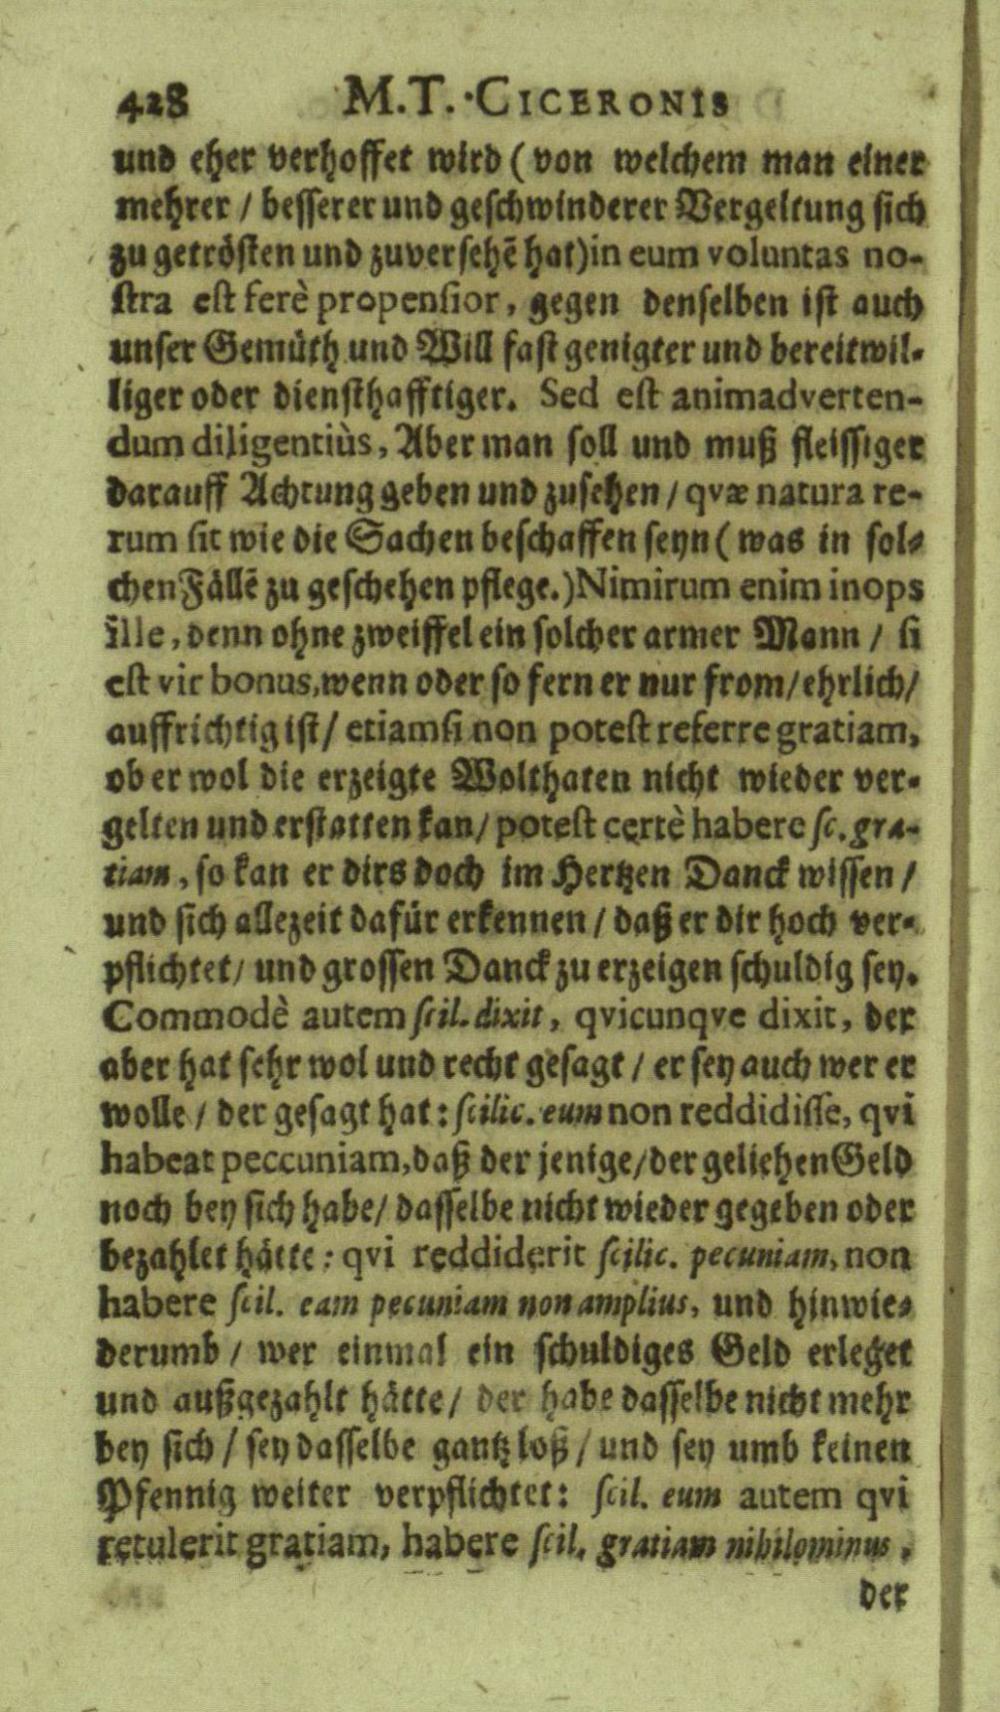 428 M.T. CICERONIS
und eher verhoffet wird (von welchem man einer
mehrer / besserer und geschwinderer Vergeltung sich
zu getrösten und zuversehē hat) in eum voluntas no-
stra est ferè propensior, gegen denselben ist auch
unser Gemüth und Will fast genigter und bereitwil-
liger oder diensthafftiger. Sed est animadverten-
dum diligentiùs, Aber man soll und muß fleissiger
darauff Achtung geben und zusehen / qvæ natura re-
rum sit wie die Sachen beschaffen seyn (was in sol-
chen Fällē zu geschehen pflege.) Nimirum enim inops
ille, denn ohne zweiffel ein solcher armer Mann / si
est vir bonus, wenn oder so fern er nur from / ehrlich /
auffrichtig ist / etiamsi non potest referre gratiam,
ob er wol die erzeigte Wolthaten nicht wieder ver-
gelten und erstatten kan / potest certè habere sc. gra-
tiam, so kan er dirs doch im Hertzen Danck wissen /
und sich allezeit dafür erkennen / daß er dir hoch ver-
pflichtet / und grossen Danck zu erzeigen schuldig sey.
Commodè autem scil. dixit, qvicunqve dixit, der
aber hat sehr wol und recht gesagt / er sey auch wer er
wolle / der gesagt hat: scilic. eum non reddidisse, qvi
habeat peccuniam, daß der jenige / der geliehen Geld
noch bey sich habe / dasselbe nicht wieder gegeben oder
bezahlet hätte: qvi reddiderit scilic. pecuniam, non
habere scil. eam pecuniam non amplius, und hinwie-
derumb / wer einmal ein schuldiges Geld erleget
und außgezahlt hätte / der habe dasselbe nicht mehr
bey sich / sey dasselbe gantz loß / und sey umb keinen
Pfennig weiter verpflichtet: scil. eum autem qvi
retulerit gratiam, habere scil. gratiam nihilominus,
der